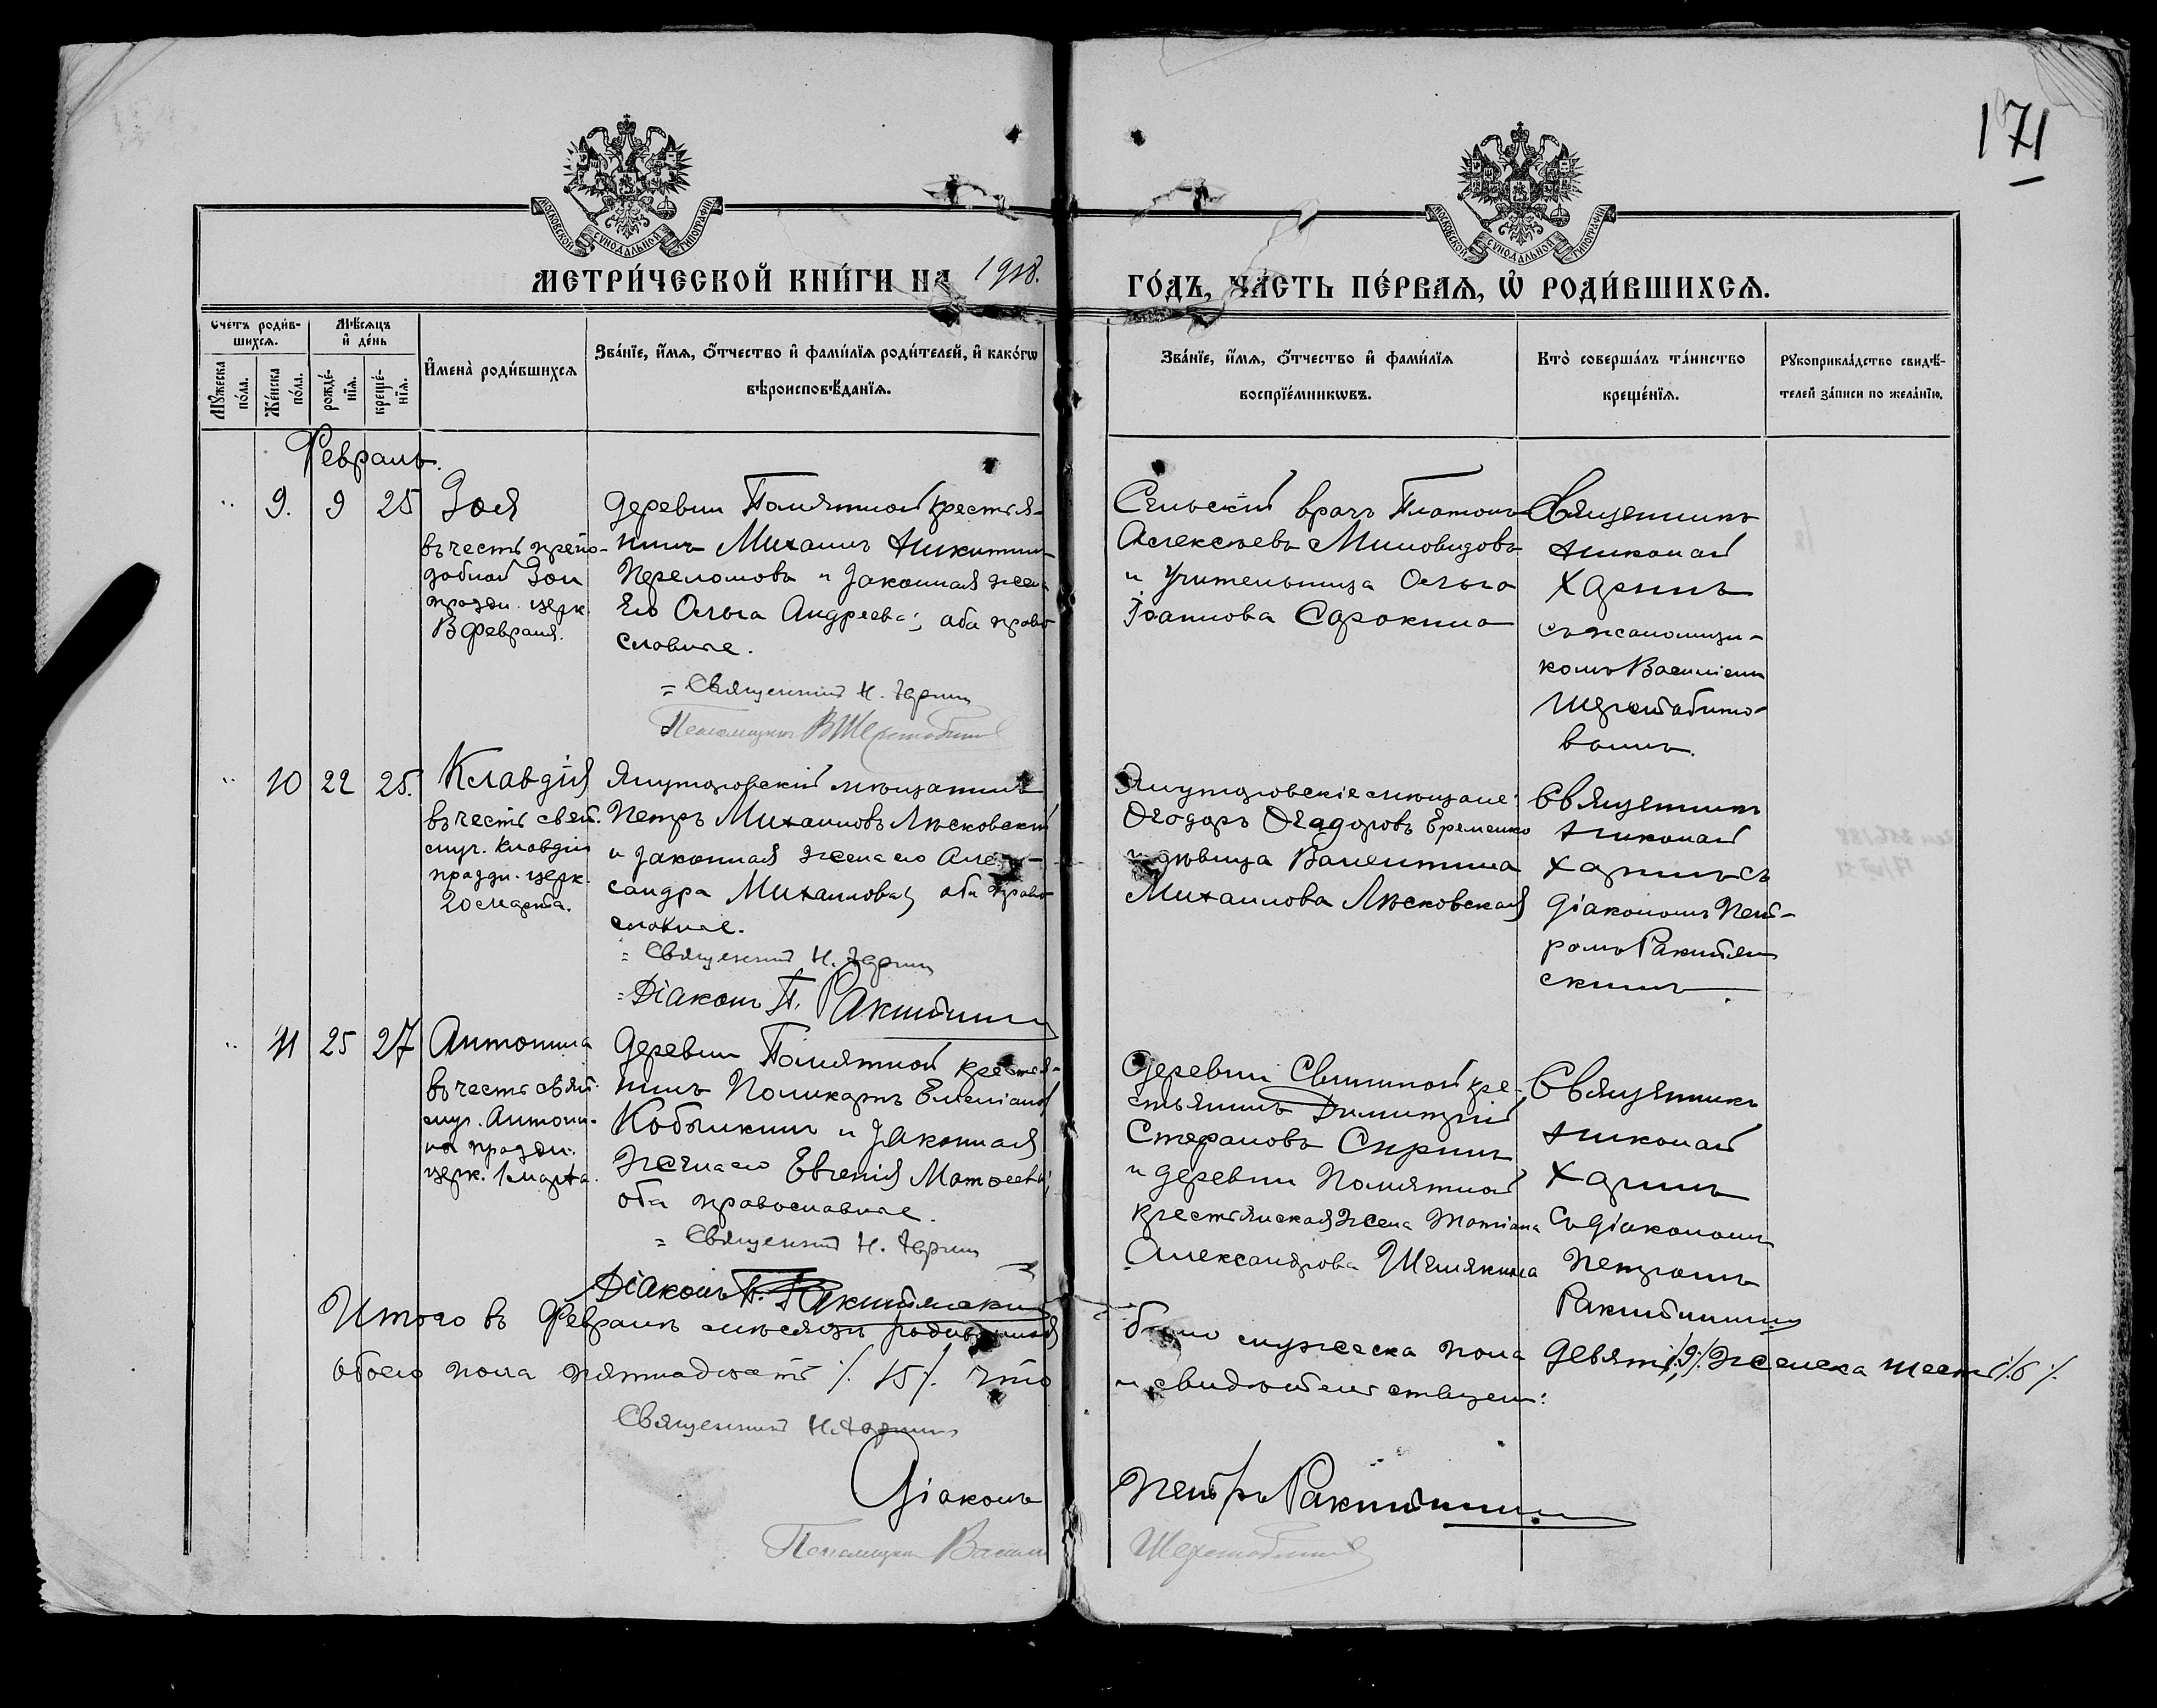 171
МОСКОВСКОЙ СѴНОДАЛЬНОЙ ТИПОГРАФІИ
МОСКОВСКОЙ СѴНОДАЛЬНОЙ ТИПОГРАФІИ
МЕТРИ́ЧЕСКОЙ КНИ́ГИ НА 1918.
ГО́ДЪ, ЧА́СТЬ ПЕ́РВАѦ, Ѽ РОДИ́ВШИХСѦ.
Счетъ роди́в-
шихсѧ.
Мѣ́сѧцъ
и҆ де́нь
Мꙋжеска по́ла.
Же́нска по́ла.
рожде́-нїѧ.
креще́-нїѧ.
И҆мена̀ роди́вшихсѧ
Зва́нїе, и҆́мѧ, ѻ҆́тчество и҆ фами́лїѧ роди́телей, и҆ како́гѡ
вѣроисповѣ́данїѧ.
Зва́нїе, и҆́мѧ, ѻ҆́тчество и҆ фами́лїѧ
воспрїе́мникѡвъ.
Кто̀ соверша́лъ та́инство
креще́нїѧ.
Рꙋкоприкла́дство свидѣ́-
телей за́писи по жела́нїю.
Февраль.
9. 9 25 Зоя
въ честь препо-
добной Зои
праздн. церк.
13 февраля.
деревни Памятной крестья-
нинъ Михаилъ Никитинъ
Переломовъ и законная жена
его Ольга Андреева; оба право
славные.
= Священникъ Н. Харинъ
Псаломщикъ В Шерстобитов
Сельскій врачъ Платонъ
Алексѣевъ Миловидовъ
и учительница Ольга
Іоаннова Сорокина
Священникъ
Николай
Харинъ
съ псаломщи-
комъ Василіемъ
Шерстобито-
вымъ.
10 22 25. Клавдія
въ честь свят.
муч. Клавдіи
праздн. церк.
20 марта.
Ялуторовскій мѣщанинъ
Петръ Михаиловъ Лѣсковскій
и законная жена его Алек-
сандра Михаилова, оба право
славные.
= Священникъ Н. Харинъ
= Діаконъ П. Ракитин
Ялуторовскіе мѣщане:
Ѳеодоръ Ѳеодоровъ Еременко
и дѣвица Валентина
Михаилова Лѣсковская
Священникъ
Николай
Харинъ съ
діакономъ Пет-
ромъ Ракитян
скимъ.
11 25 27 Антонина
въ честь свят.
муч. Антони-
ны праздн.
церк. 1 марта.
деревни Памятной крестья-
нинъ Поликарпъ Емеліановъ
Кобылкинъ и законная
жена его Евгенія Матѳеева;
оба православные.
= Священникъ Н. Харинъ
Діаконъ П. Ракитянски
деревни Свининой кре-
стьянинъ Димитрій
Стефановъ Сиринъ
и деревни Памятной
крестьянская жена Татіана
Александрова Шемякина
Священникъ
Николай
Харинъ
Съ діакономъ
Петромъ
Ракитянским
Итого въ Февралѣ мѣсяцѣ родившихся было мужеска пола девять /.9/. женска шесть /.6/.
обоего пола пятнадцать /.15/. что и свидѣтельствуемъ:
Священникъ Н. Харинъ
Діаконъ Петръ Ракитянски
Псаломщикъ Василій Шерстобитов